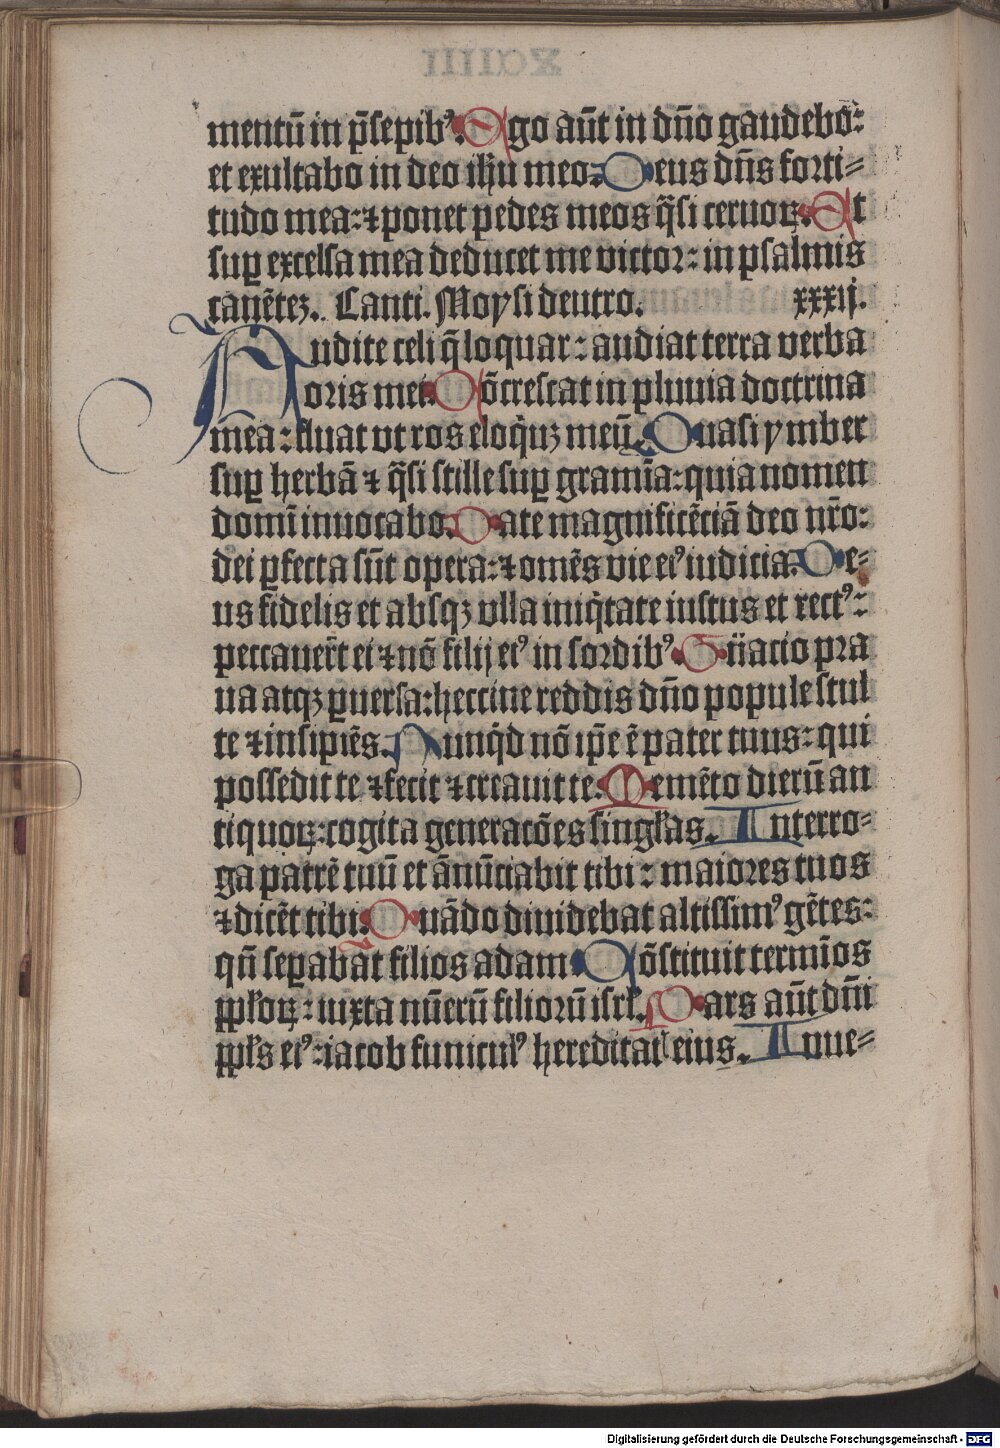 mentū in p̄sepibꝰ. Ego aūt in dn̄o gaudebo:
et exultabo in deo ih̄u meo. Deus dn̄s forti⸗
tudo mea: ⁊ ponet pedes meos q̄si ceruoꝝ. Et
suꝑ excelsa mea deducet me victor: in psalmis
canētez. Canti. Moysi deutro. xxxij.
Audite celi q̄ loquar: audiat terra verba
oris mei. Cōcrescat in pluuia doctrina
mea: fluat vt ros eloq̄uꝫ meū. Quasi ymber
suꝑ herbā ⁊ q̄si stille suꝑ gramīa: quia nomen
domī inuocabo. Date magnificēciā deo nr̄o:
dei ꝑfecta sūt opera: ⁊ omēs vie eiꝰ iudicia. De⸗
us fidelis et absqꝫ vlla iniq̄tate iustus et rectꝰ:
peccauer̄t ei ⁊ nō filij eiꝰ in sordibꝰ. Gn̄acio pra
ua atqꝫ ꝑuersa: heccine reddis dn̄o popule stul
te ⁊ insipiēs. Nunq̄d nō ip̄e ē pater tuus: qui
possedit te ⁊ fecit ⁊ creauit te. Memēto dierū an
tiquoꝝ: cogita generacōes singl̄as. Interro⸗
ga patrē tuū et ānūciabit tibi: maiores tuos
⁊ dicēt tibi. Quādo diuidebat altissimꝰ gētes:
qn̄ seꝑabat filios adam. Cōstituit termīos
ppl̄oꝝ: iuxta nūerū filiorū isrl̄. Pars aūt dn̄i
ppl̄s eiꝰ: iacob funiculꝰ hereditatꝭ eius. Inue⸗
Digitalisierung gefördert durch die Deutsche Forschungsgemeinschaft - DFG